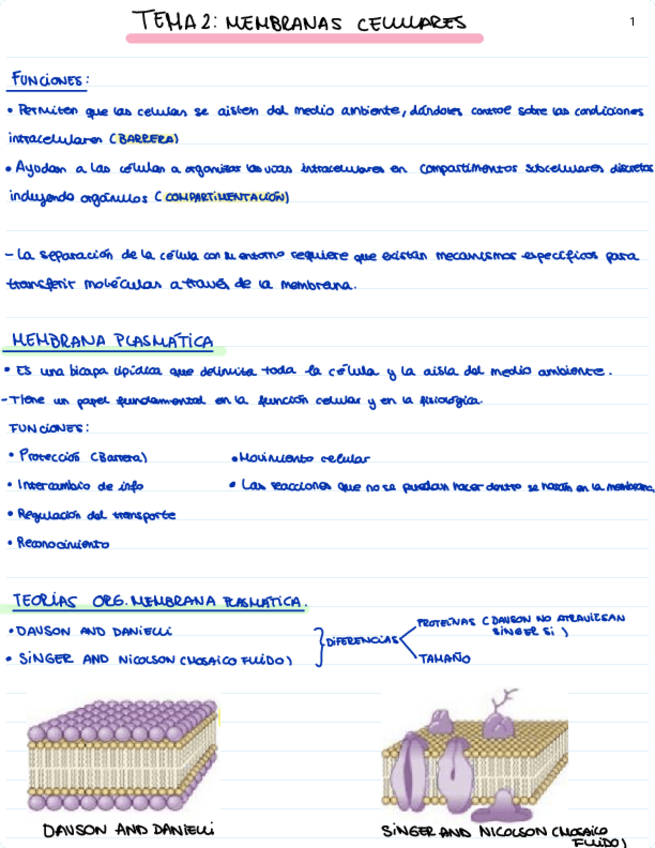 TEMA 2: MEMBRANAS CELULARES
1
FUNCIONES:
• Permiten que las celulas se aislen del medio ambiente, dándoles control sobre las condiciones
intracelulares (BARRERA)
• Ayudan a las células a organizar las vias intracelulares en compartimentos subcelulares discretos
incluyendo orgánulos (COMPARTIMENTACIÓN)
- La separación de la célula con su entorno requiere que existan mecanismos específicos para
transferir moléculas a través de la membrana.
MEMBRANA PLASMÁTICA
• Es una bicapa lipídica que delimita toda la célula y la aisla del medio ambiente.
- Tiene un papel fundamental en la función celular y en la fisiológica.
FUNCIONES:
• Protección (Barrera)
• Movimiento celular
• Intercambio de info
• Las reacciones que no se puedan hacer dentro se harán en la membrana,
• Regulación del transporte
• Reconocimiento
TEORÍAS ORG. MEMBRANA PLASMÁTICA.
• DAVSON AND DANIELLI
• SINGER AND NICOLSON (MOSAICO FLUÍDO)
DIFERENCIAS
PROTEÍNAS (DAVSON NO ATRAVIESAN
SINGER SI)
TAMAÑO
DAVSON AND DANIELLI
SINGER AND NICOLSON (MOSAICO
FLUÍDO)